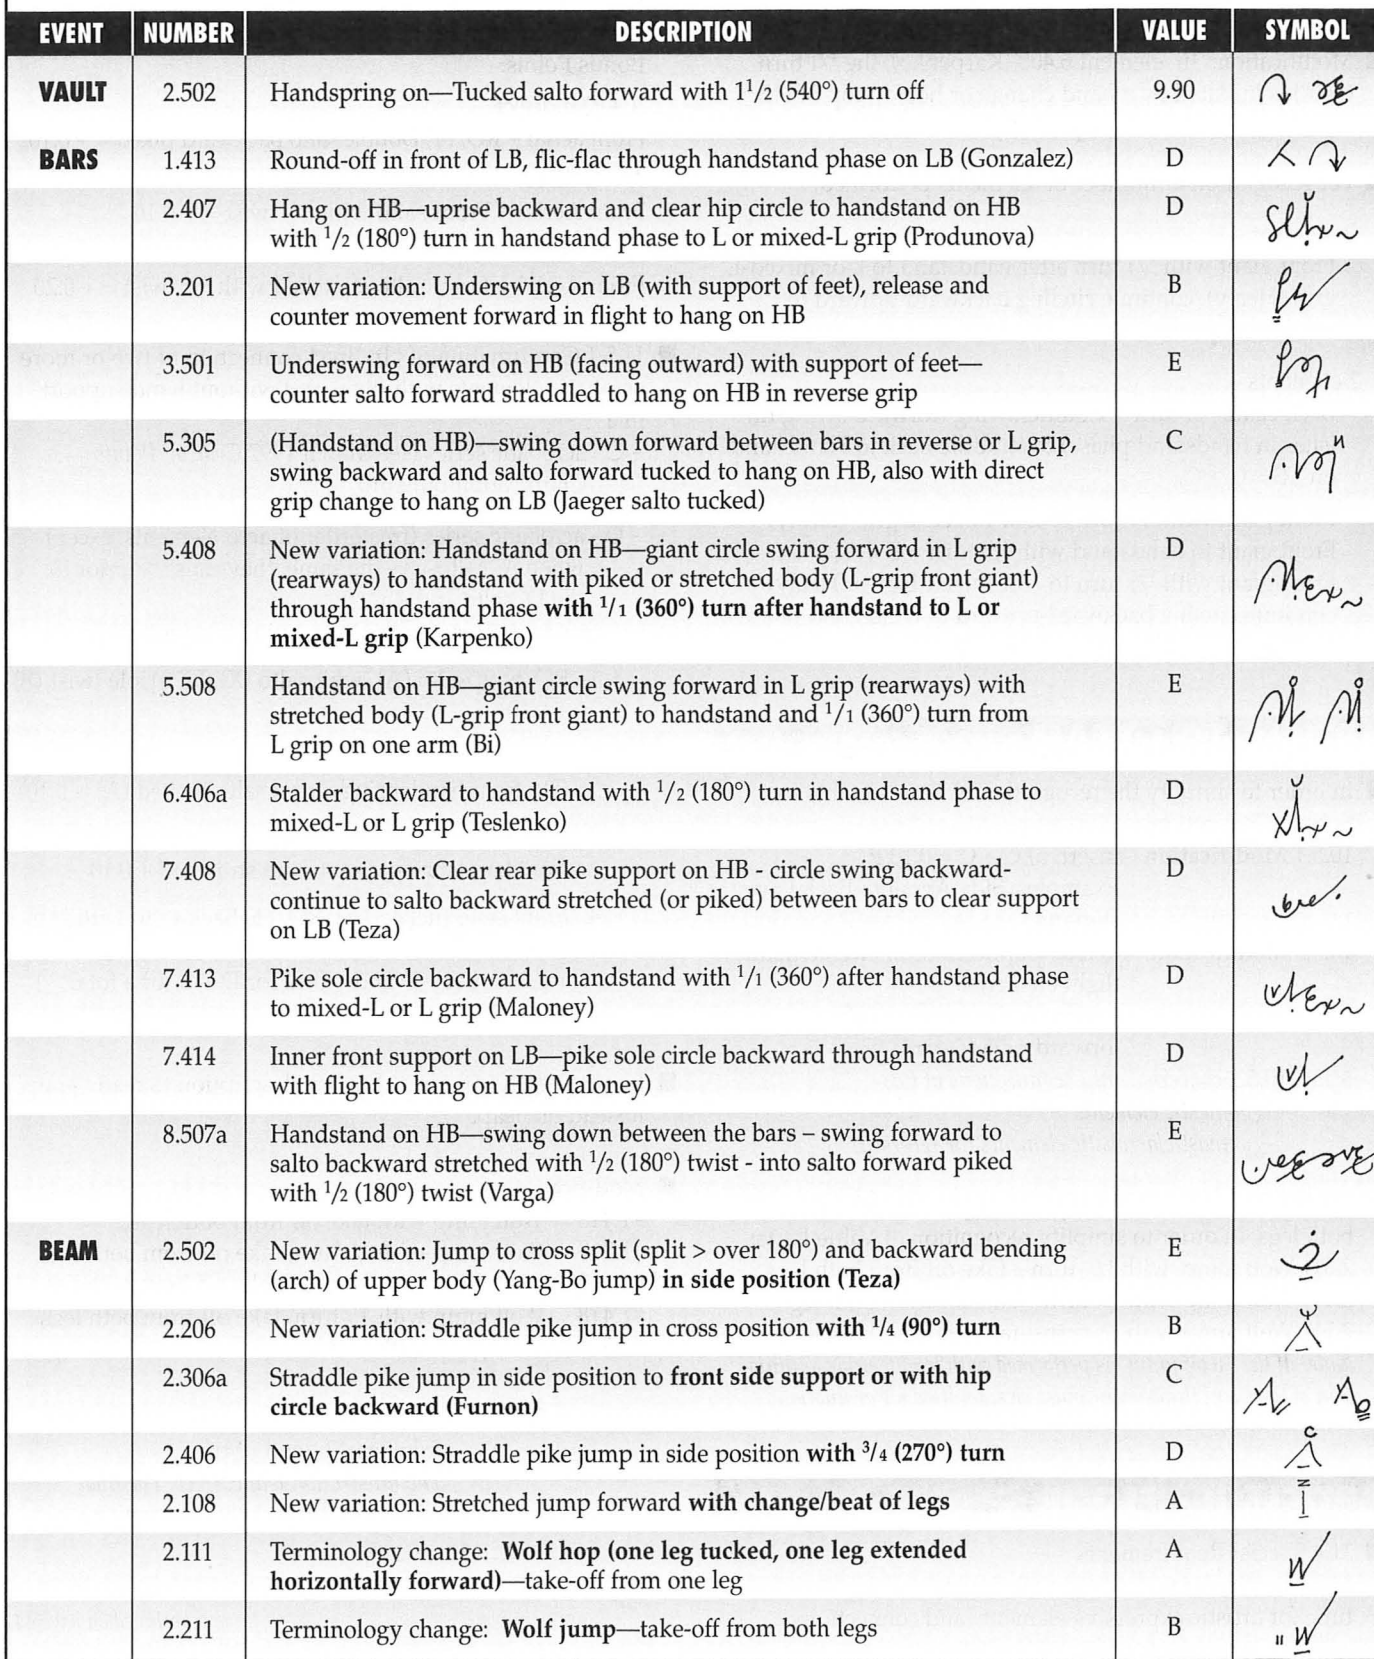 EVENT NUMBER DESCRIPTION VALUE SYMBOL
VAULT 2.502 Handspring on—Tucked salto forward with 1 1/2 (540°) turn off 9.90
BARS 1.413 Round-off in front of LB, flic-flac through handstand phase on LB (Gonzalez) D
2.407 Hang on HB—uprise backward and clear hip circle to handstand on HB D
with 1/2 (180°) turn in handstand phase to L or mixed-L grip (Produnova)
3.201 New variation: Underswing on LB (with support of feet), release and B
counter movement forward in flight to hang on HB
3.501 Underswing forward on HB (facing outward) with support of feet— E
counter salto forward straddled to hang on HB in reverse grip
5.305 (Handstand on HB)—swing down forward between bars in reverse or L grip, C
swing backward and salto forward tucked to hang on HB, also with direct
grip change to hang on LB (Jaeger salto tucked)
5.408 New variation: Handstand on HB—giant circle swing forward in L grip D
(rearways) to handstand with piked or stretched body (L-grip front giant)
through handstand phase with 1/1 (360°) turn after handstand to L or
mixed-L grip (Karpenko)
5.508 Handstand on HB—giant circle swing forward in L grip (rearways) with E
stretched body (L-grip front giant) to handstand and 1/1 (360°) turn from
L grip on one arm (Bi)
6.406a Stalder backward to handstand with 1/2 (180°) turn in handstand phase to D
mixed-L or L grip (Teslenko)
7.408 New variation: Clear rear pike support on HB - circle swing backward- D
continue to salto backward stretched (or piked) between bars to clear support
on LB (Teza)
7.413 Pike sole circle backward to handstand with 1/1 (360°) after handstand phase D
to mixed-L or L grip (Maloney)
7.414 Inner front support on LB—pike sole circle backward through handstand D
with flight to hang on HB (Maloney)
8.507a Handstand on HB—swing down between the bars – swing forward to E
salto backward stretched with 1/2 (180°) twist - into salto forward piked
with 1/2 (180°) twist (Varga)
BEAM 2.502 New variation: Jump to cross split (split > over 180°) and backward bending E
(arch) of upper body (Yang-Bo jump) in side position (Teza)
2.206 New variation: Straddle pike jump in cross position with 1/4 (90°) turn B
2.306a Straddle pike jump in side position to front side support or with hip C
circle backward (Furnon)
2.406 New variation: Straddle pike jump in side position with 3/4 (270°) turn D
2.108 New variation: Stretched jump forward with change/beat of legs A
2.111 Terminology change: Wolf hop (one leg tucked, one leg extended A
horizontally forward)—take-off from one leg
2.211 Terminology change: Wolf jump—take-off from both legs B